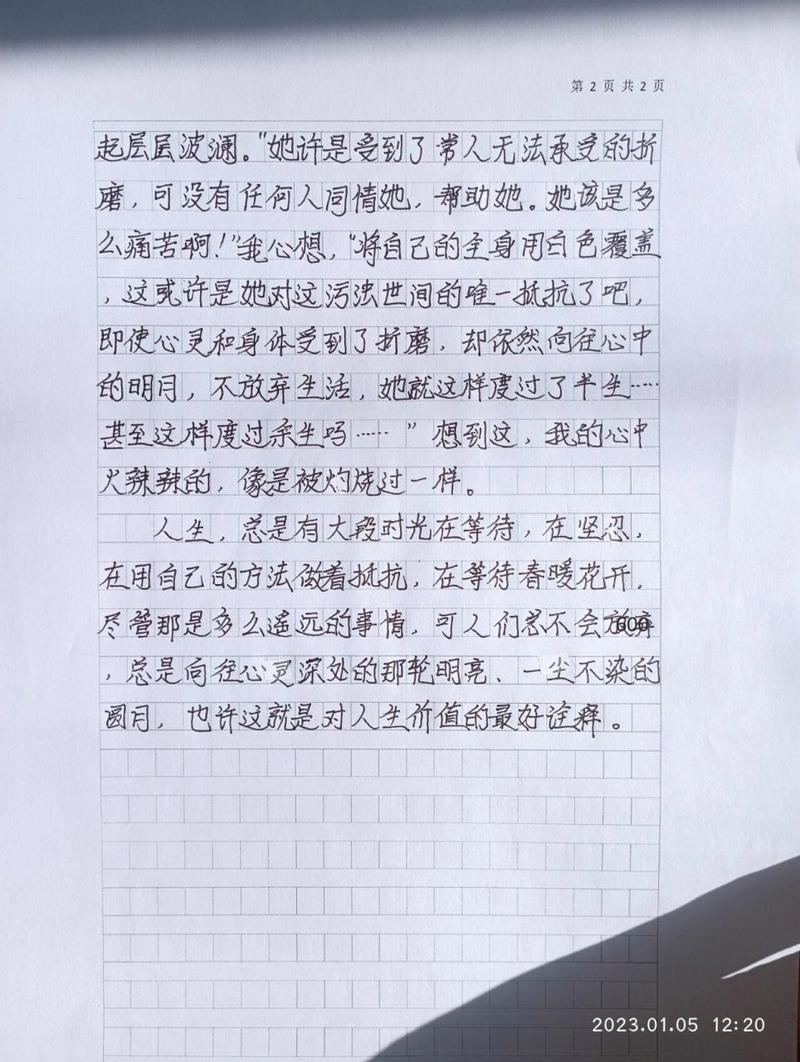 第 2 页 共 2 页
起层层波澜。"她许是受到了常人无法承受的折
磨，可没有任何人同情她，帮助她。她该是多
么痛苦啊！"我心想，"将自己的全身用白色覆盖
，这或许是她对这污浊世间的唯一抵抗了吧，
即使心灵和身体受到了折磨，却依然向往心中
的明月，不放弃生活，她就这样度过了半生……
甚至这样度过余生吗……"想到这，我的心中
火辣辣的，像是被灼烧过一样。
人生，总是有大段时光在等待，在坚忍，
在用自己的方法做着抵抗，在等待春暖花开，
尽管那是多么遥远的事情，可人们总不会放弃
，总是向往心灵深处的那轮明亮、一尘不染的
圆月，也许这就是对人生价值的最好诠释。
2023.01.05 12:20